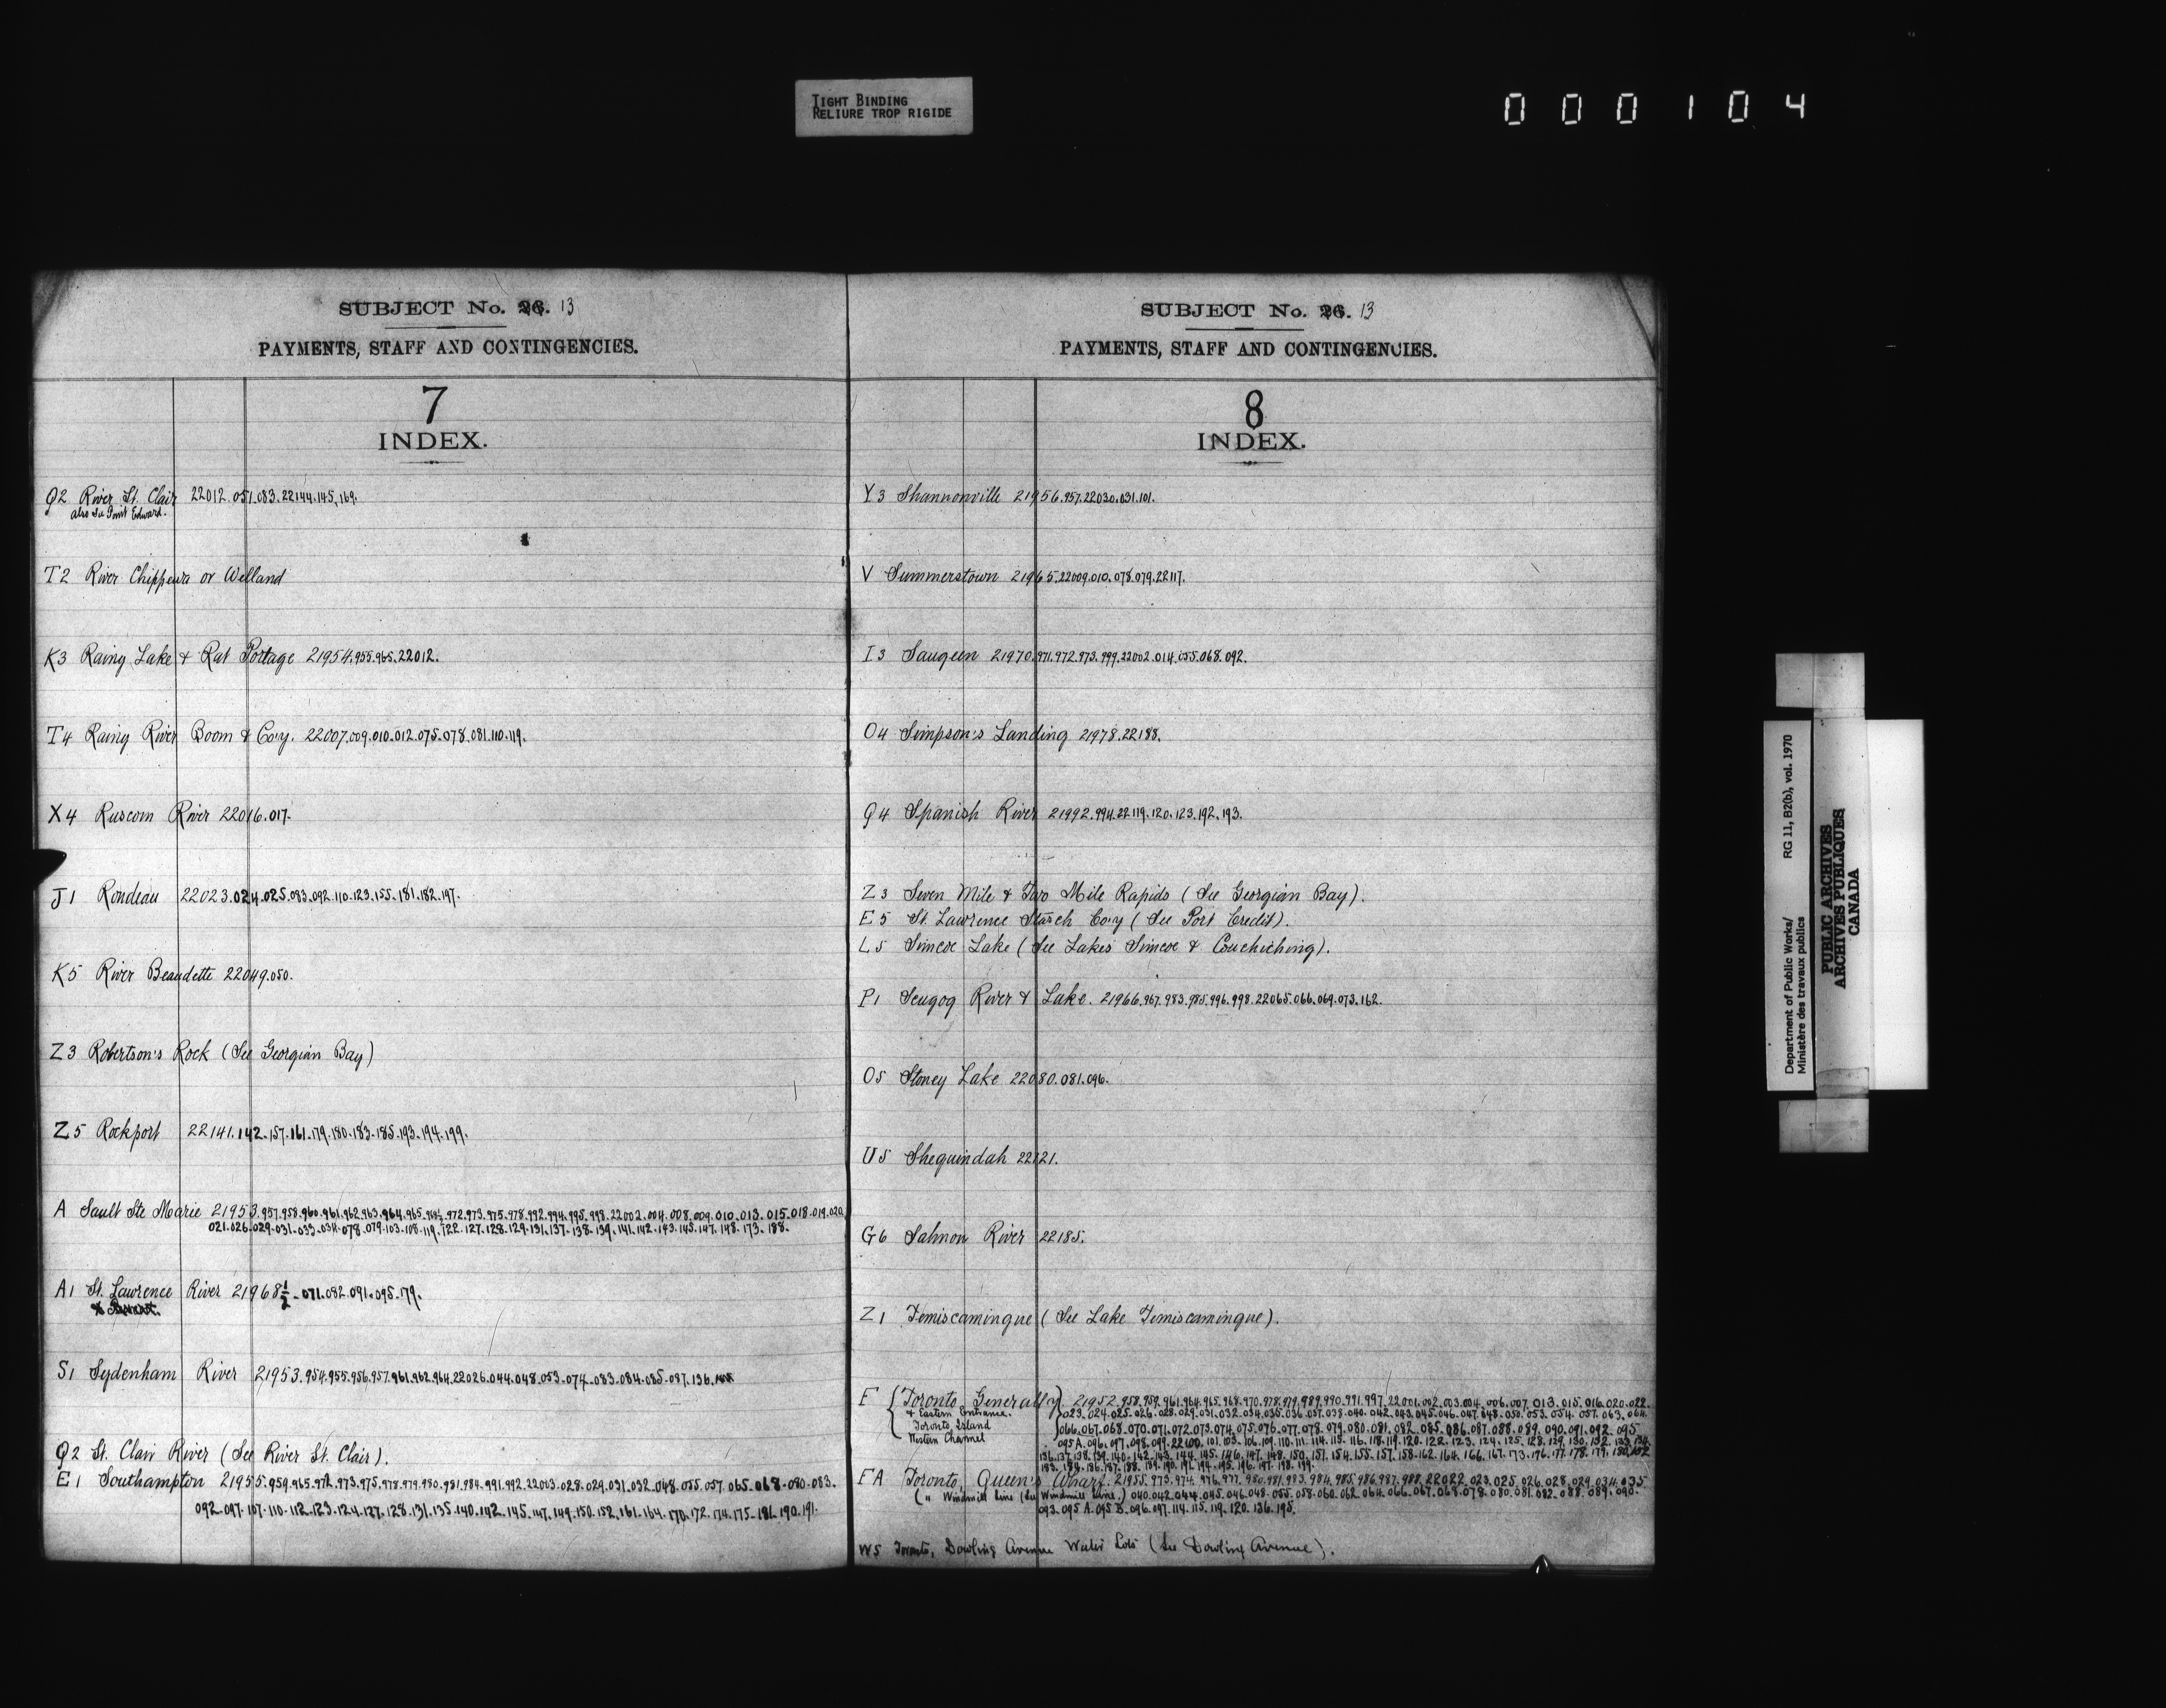 TIGHT BINDING
RELIURE TROP RIGIDE
000104
SUBJECT No. 26. 13
PAYMENTS, STAFF AND CONTINGENCIES.
7
INDEX.
Q2 River St. Clair 22012.051.083.22144.145.169.
also see Point Edward.
T2 River Chippewa or Welland
K3 Rainy Lake & Rat Portage 21954.955.965.22012.
T4 Rainy River Boom & Co'y. 22007.009.010.012.075.078.081.110.119.
X4 Ruscom River 22016.017.
J1 Rondeau 22023.024.025.083.092.110.123.155.181.182.197.
K5 River Beaudette 22049.050.
Z3 Robertson's Rock (See Georgian Bay)
Z5 Rockport 22141.142.157.161.179.180.183.185.193.194.199.
A Sault Ste Marie 21953.957.958.960.961.962.963.964.965.968½.972.973.975.978.992.994.995.998.22002.004.008.009.010.013.015.018.019.020.
021.026.029.031.033.034.078.079.103.108.119.122.127.128.129.131.137.138.139.141.142.143.145.147.148.173.188.
A1 St. Lawrence River 21968½.071.082.091.095.179.
S1 Sydenham River 21953.954.955.956.957.961.962.964.22026.044.048.053.074.083.084.085.087.136.
Q2 St. Clair River (See River St. Clair).
E1 Southampton 21955.959.965.972.973.975.978.979.980.981.984.991.992.22003.028.029.031.032.048.055.057.065.068.080.083.
092.097.107.110.112.123.124.127.128.131.135.140.142.145.147.149.150.152.161.164.170.172.174.175.181.190.191.
SUBJECT No. 26. 13
PAYMENTS, STAFF AND CONTINGENCIES.
8
INDEX.
Y3 Shannonville 21956.957.22030.031.101.
V Summerstown 21965.22009.010.078.079.22117.
I3 Saugeen 21970.971.972.973.999.22002.014.055.068.092.
O4 Simpson's Landing 21978.22188.
Q4 Spanish River 21992.994.22119.120.123.192.193.
Z3 Seven Mile & Two Mile Rapids (See Georgian Bay).
E5 St. Lawrence Starch Co'y (See Port Credit).
L5 Simcoe Lake (See Lakes Simcoe & Couchiching).
P1 Scugog River & Lake. 21966.967.983.985.996.998.22065.066.069.073.162.
O5 Stoney Lake 22080.081.096.
U5 Sheguindah 22121.
G6 Salmon River 22185.
Z1 Temiscamingue (See Lake Temiscamingue).
F Toronto Generally 21952.958.959.961.964.965.968.970.978.979.989.990.991.997.22001.002.003.004.006.007.013.015.016.020.022.
& Eastern Entrance. 023.024.025.026.028.029.031.032.034.035.036.037.038.040.042.043.045.046.047.048.050.053.054.057.063.064.
Toronto Island 066.067.068.070.071.072.073.074.075.076.077.078.079.080.081.082.085.086.087.088.089.090.091.092.095
Western Channel 095A.096.097.098.099.22100.101.103.106.109.110.111.114.115.116.118.119.120.122.123.124.125.128.129.130.132.133.134.
136.137.138.139.140.142.143.144.145.146.147.148.150.151.154.155.157.158.162.164.166.167.173.176.177.178.179.180.182
183.184.186.187.188.189.190.191.194.195.196.197.198.199.
FA Toronto, Queen's Wharf. 21955.973.974.976.977.980.981.983.984.985.986.987.988.22022.023.025.026.028.029.034.035
(" Windmill Line (See Windmill Line.) 040.042.044.045.046.048.055.058.060.062.064.066.067.068.078.080.081.082.088.089.090.
093.095 A.095 B.096.097.114.115.119.120.136.195.
W5 Toronto, Dowling Avenue Water Lots (See Dowling Avenue).
Department of Public Works/ RG 11, B2(b), vol. 1970
Ministère des travaux publics
PUBLIC ARCHIVES
ARCHIVES PUBLIQUES
CANADA